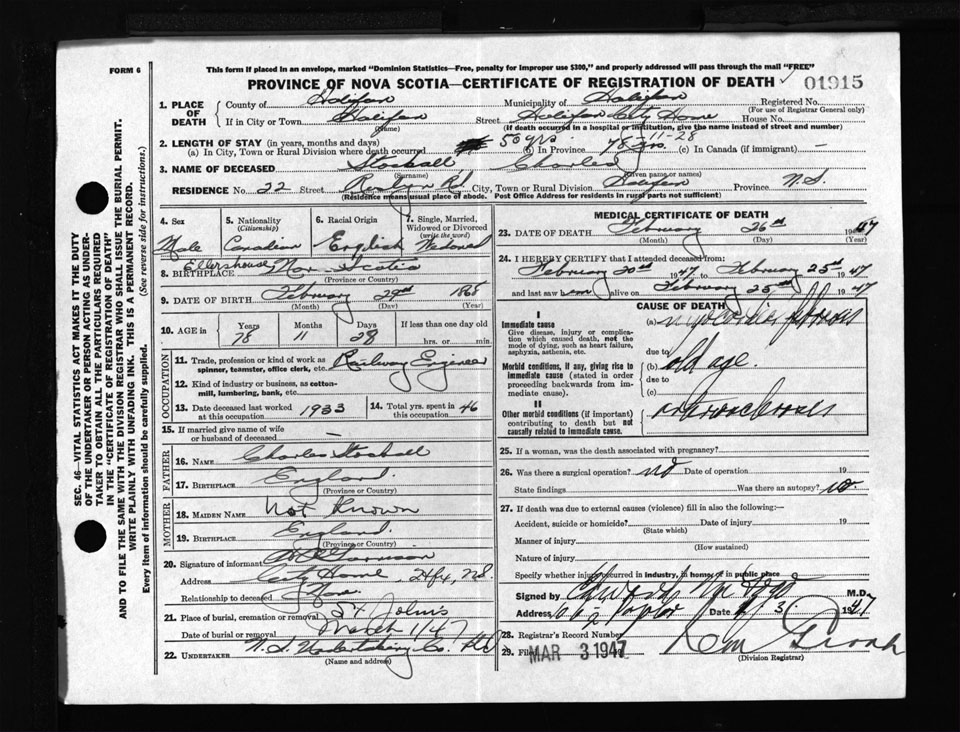 FORM 6
This form if placed in an envelope, marked "Dominion Statistics—Free, penalty for improper use $300," and properly addressed will pass through the mail "FREE"
PROVINCE OF NOVA SCOTIA—CERTIFICATE OF REGISTRATION OF DEATH
01915
SEC. 46—VITAL STATISTICS ACT MAKES IT THE DUTY
OF THE UNDERTAKER OR PERSON ACTING AS UNDER-
TAKER TO OBTAIN ALL THE PARTICULARS REQUIRED
IN THE "CERTIFICATE OF REGISTRATION OF DEATH"
AND TO FILE THE SAME WITH THE DIVISION REGISTRAR WHO SHALL ISSUE THE BURIAL PERMIT.
WRITE PLAINLY WITH UNFADING INK. THIS IS A PERMANENT RECORD.
Every item of information should be carefully supplied. (See reverse side for instructions.)
1. PLACE OF DEATH
County of Halifax Municipality of Halifax Registered No.
(For use of Registrar General only)
If in City or Town Halifax Street Halifax City Home House No.
(Name) (If death occurred in a hospital or institution, give the name instead of street and number)
2. LENGTH OF STAY (in years, months and days)
(a) In City, Town or Rural Division where death occurred 50 yrs (b) In Province 78 yrs. 11-28 (c) In Canada (if immigrant) —
3. NAME OF DECEASED Stockall Charles
(Surname) (Given name or names)
RESIDENCE No. 22 Street Roslyn Rd City, Town or Rural Division Halifax Province N.S.
(Residence means usual place of abode. Post Office Address for Residents in rural parts not sufficient)
4. Sex
Male
5. Nationality
(Citizenship)
Canadian
6. Racial Origin
English
7. Single, Married,
Widowed or Divorced
(write the word)
Widowed
8. BIRTHPLACE Ellershouse, Nova Scotia
(Province or Country)
9. DATE OF BIRTH February 29th 1868
(Month) (Day) (Year)
10. AGE in Years Months Days If less than one day old
78 11 28 hrs. or min.
OCCUPATION
11. Trade, profession or kind of work as
spinner, teamster, office clerk, etc. Railway Engineer
12. Kind of industry or business, as cotton-
mill, lumbering, bank, etc.
13. Date deceased last worked
at this occupation 1933
14. Total yrs. spent in
this occupation 46
15. If married give name of wife
or husband of deceased —
FATHER
16. NAME Charles Stockall
17. BIRTHPLACE England
(Province or Country)
MOTHER
18. MAIDEN NAME Not Known
19. BIRTHPLACE England
(Province or Country)
20. Signature of informant
Address City Home, Hfx, N.S.
Relationship to deceased
21. Place of burial, cremation or removal St Johns
Date of burial or removal March 1/47
22. UNDERTAKER N.S. Undertaking Co. Ltd
(Name and address)
MEDICAL CERTIFICATE OF DEATH
23. DATE OF DEATH February 26th 1947
(Month) (Day) (Year)
24. I HEREBY CERTIFY that I attended deceased from:
February 20th 1947 to February 25th 1947
and last saw him alive on February 25th 1947
CAUSE OF DEATH
I
Immediate cause
Give disease, injury or complica-
tion which caused death, not the
mode of dying, such as heart failure,
asphyxia, asthenia, etc.
(a) myocardial fibrosis
due to
Morbid conditions, if any, giving rise to
immediate cause (stated in order
proceeding backwards from im-
mediate cause).
(b) old age.
due to
(c)
II
Other morbid conditions (if important)
contributing to death but not
causally related to immediate cause.
arteriosclerosis
25. If a woman, was the death associated with pregnancy?
26. Was there a surgical operation? no Date of operation 19
State findings Was there an autopsy? no.
27. If death was due to external causes (violence) fill in also the following:—
Accident, suicide or homicide? Date of injury 19
(State which)
Manner of injury
(How sustained)
Nature of injury
Specify whether injury occurred in industry, in home, or in public place
Signed by M.D.
Address Date 1947
28. Registrar's Record Number
29. Filed MAR 3 1947
(Division Registrar)